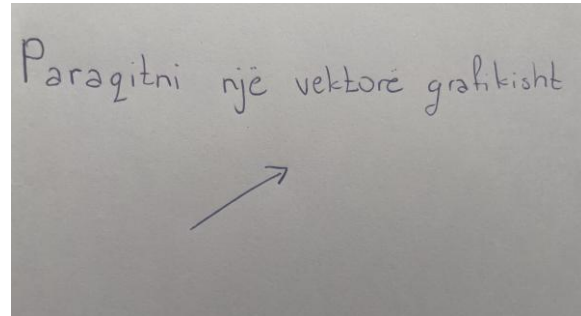 Paraqitni një vektorë grafikisht